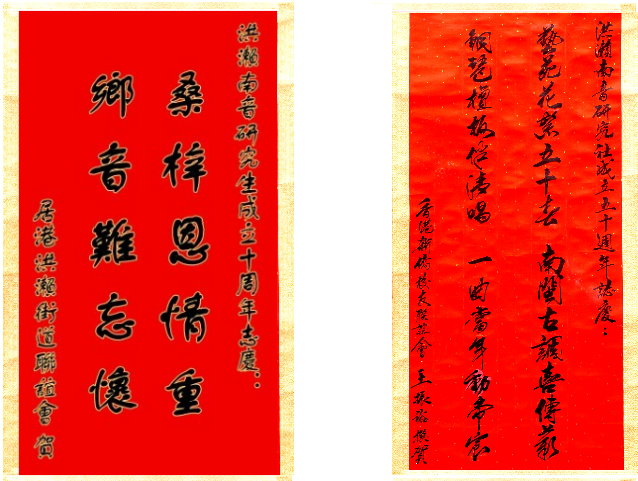 洪瀨南音研究生成立十周年志慶：
桑梓恩情重
鄉音難忘懷
居港洪瀨街道聯誼會 賀
洪瀨南音研究社成立五十週年誌慶：
藝苑花榮五十春 南閩古調喜傳薪
銅琶檀板低清唱 一曲當年動帝宸
香港新僑校友聯誼會 王振 敬賀